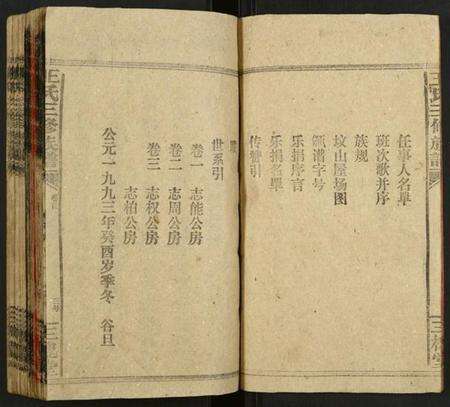 王氏三修族譜
任事人名单
班次歌并序
族规
坟山屋场图
领谱字号
乐捐序言
乐捐名单
传赞引
世系引
卷一 志能公房
卷二 志周公房
卷三 志权公房
志柏公房
公元一九九三年癸酉岁季冬 谷旦
王氏三修族譜